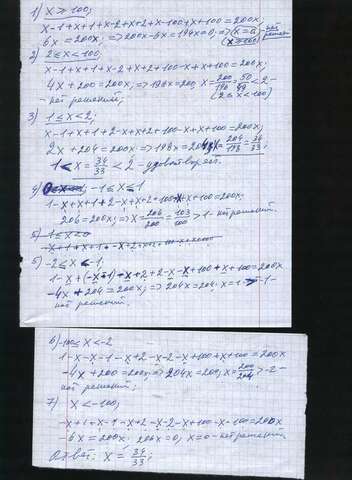 1) x ≥ 100;
x-1+x+1+x-2+x+2+x-100+x+100 = 200x
6x = 200x; => 200x-6x = 194x = 0; => x=0 - нет решен.
(x ≥ 100)
2) 2 ≤ x < 100;
x-1+x+1+x-2+x+2+100-x+x+100 = 200x;
4x + 200 = 200x; => 196x = 200, x = 200/196 = 50/49 < 2 -
- нет решений; (2 ≤ x < 100)
3) 1 ≤ x < 2;
x-1+x+1+2-x+x+2+100-x+x+100 = 200x;
2x + 204 = 200x; => 198x = 204; x = 204/198 = 34/33;
1 < x = 34/33 < 2 - удовлетворяет.
4) -1 ≤ x ≤ 1
1-x+x+1+2-x+x+2+100-x+x+100 = 200x;
206 = 200x; => x = 206/200 = 103/100 > 1 - нет решений.
5) -1 ≤ x < 0
5) -2 ≤ x < -1.
1-x+(-x-1)+x+2+2-x-x+100+x+100 = 200x
-4x + 204 = 200x; => 204x = 204. x = 1 > -1 -
нет решений.
6) -100 ≤ x < -2
1-x-x-1-x+2-x-2-x+100+x+100 = 200x
-4x + 200 = 200x; => 204x = 200; x = 200/204 > -2 -
нет решений;
7) x < -100;
-x+1-x-1-x+2-x-2-x+100-x-100 = 200x
6x = 200x; 206x = 0; x = 0 - нет решений
Ответ: x = 34/33;